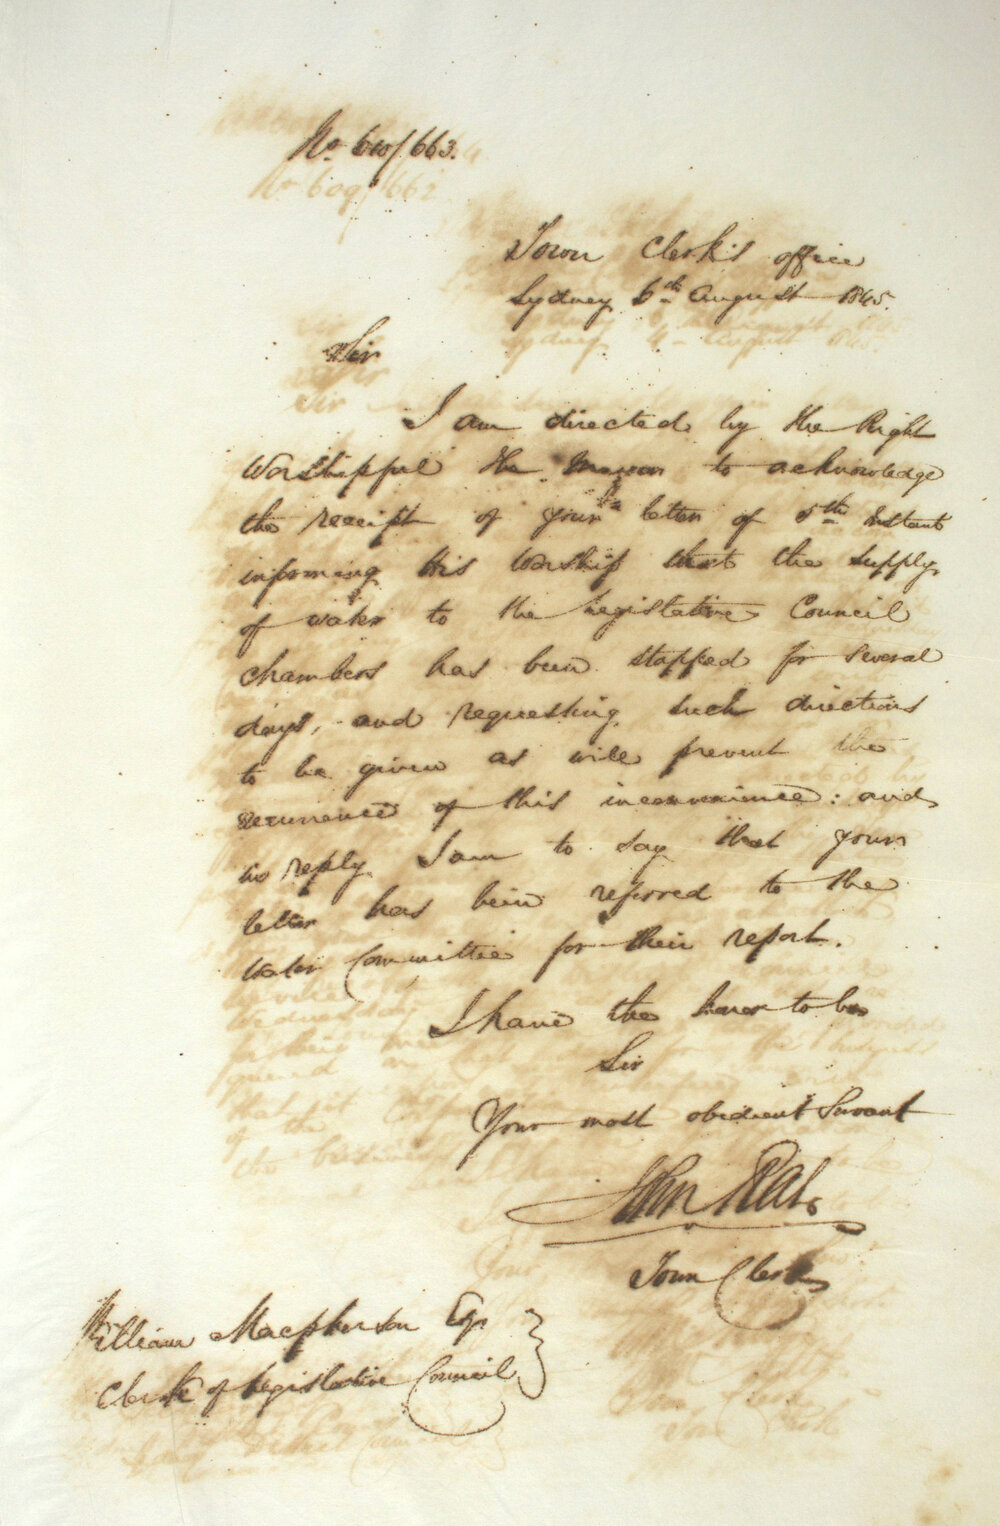 No 610/663.
Town Clerk's office
Sydney 6th August 1845.
Sir
I am directed by the Right
Worshipful the Mayor to acknowledge
the receipt of your letter of 5th Instant
informing His Worship that the supply
of water to the Legislative Council
Chambers has been stopped for several
days, and requesting such directions
to be given as will prevent the
recurrence of this inconvenience: and
in reply I am to say that your
letter has been referred to the
Water Committee for their report.
I have the honor to be
Sir
Your most obedient Servant
John Rae
Town Clerk
William Macpherson Esqr
Clerk of Legislative Council